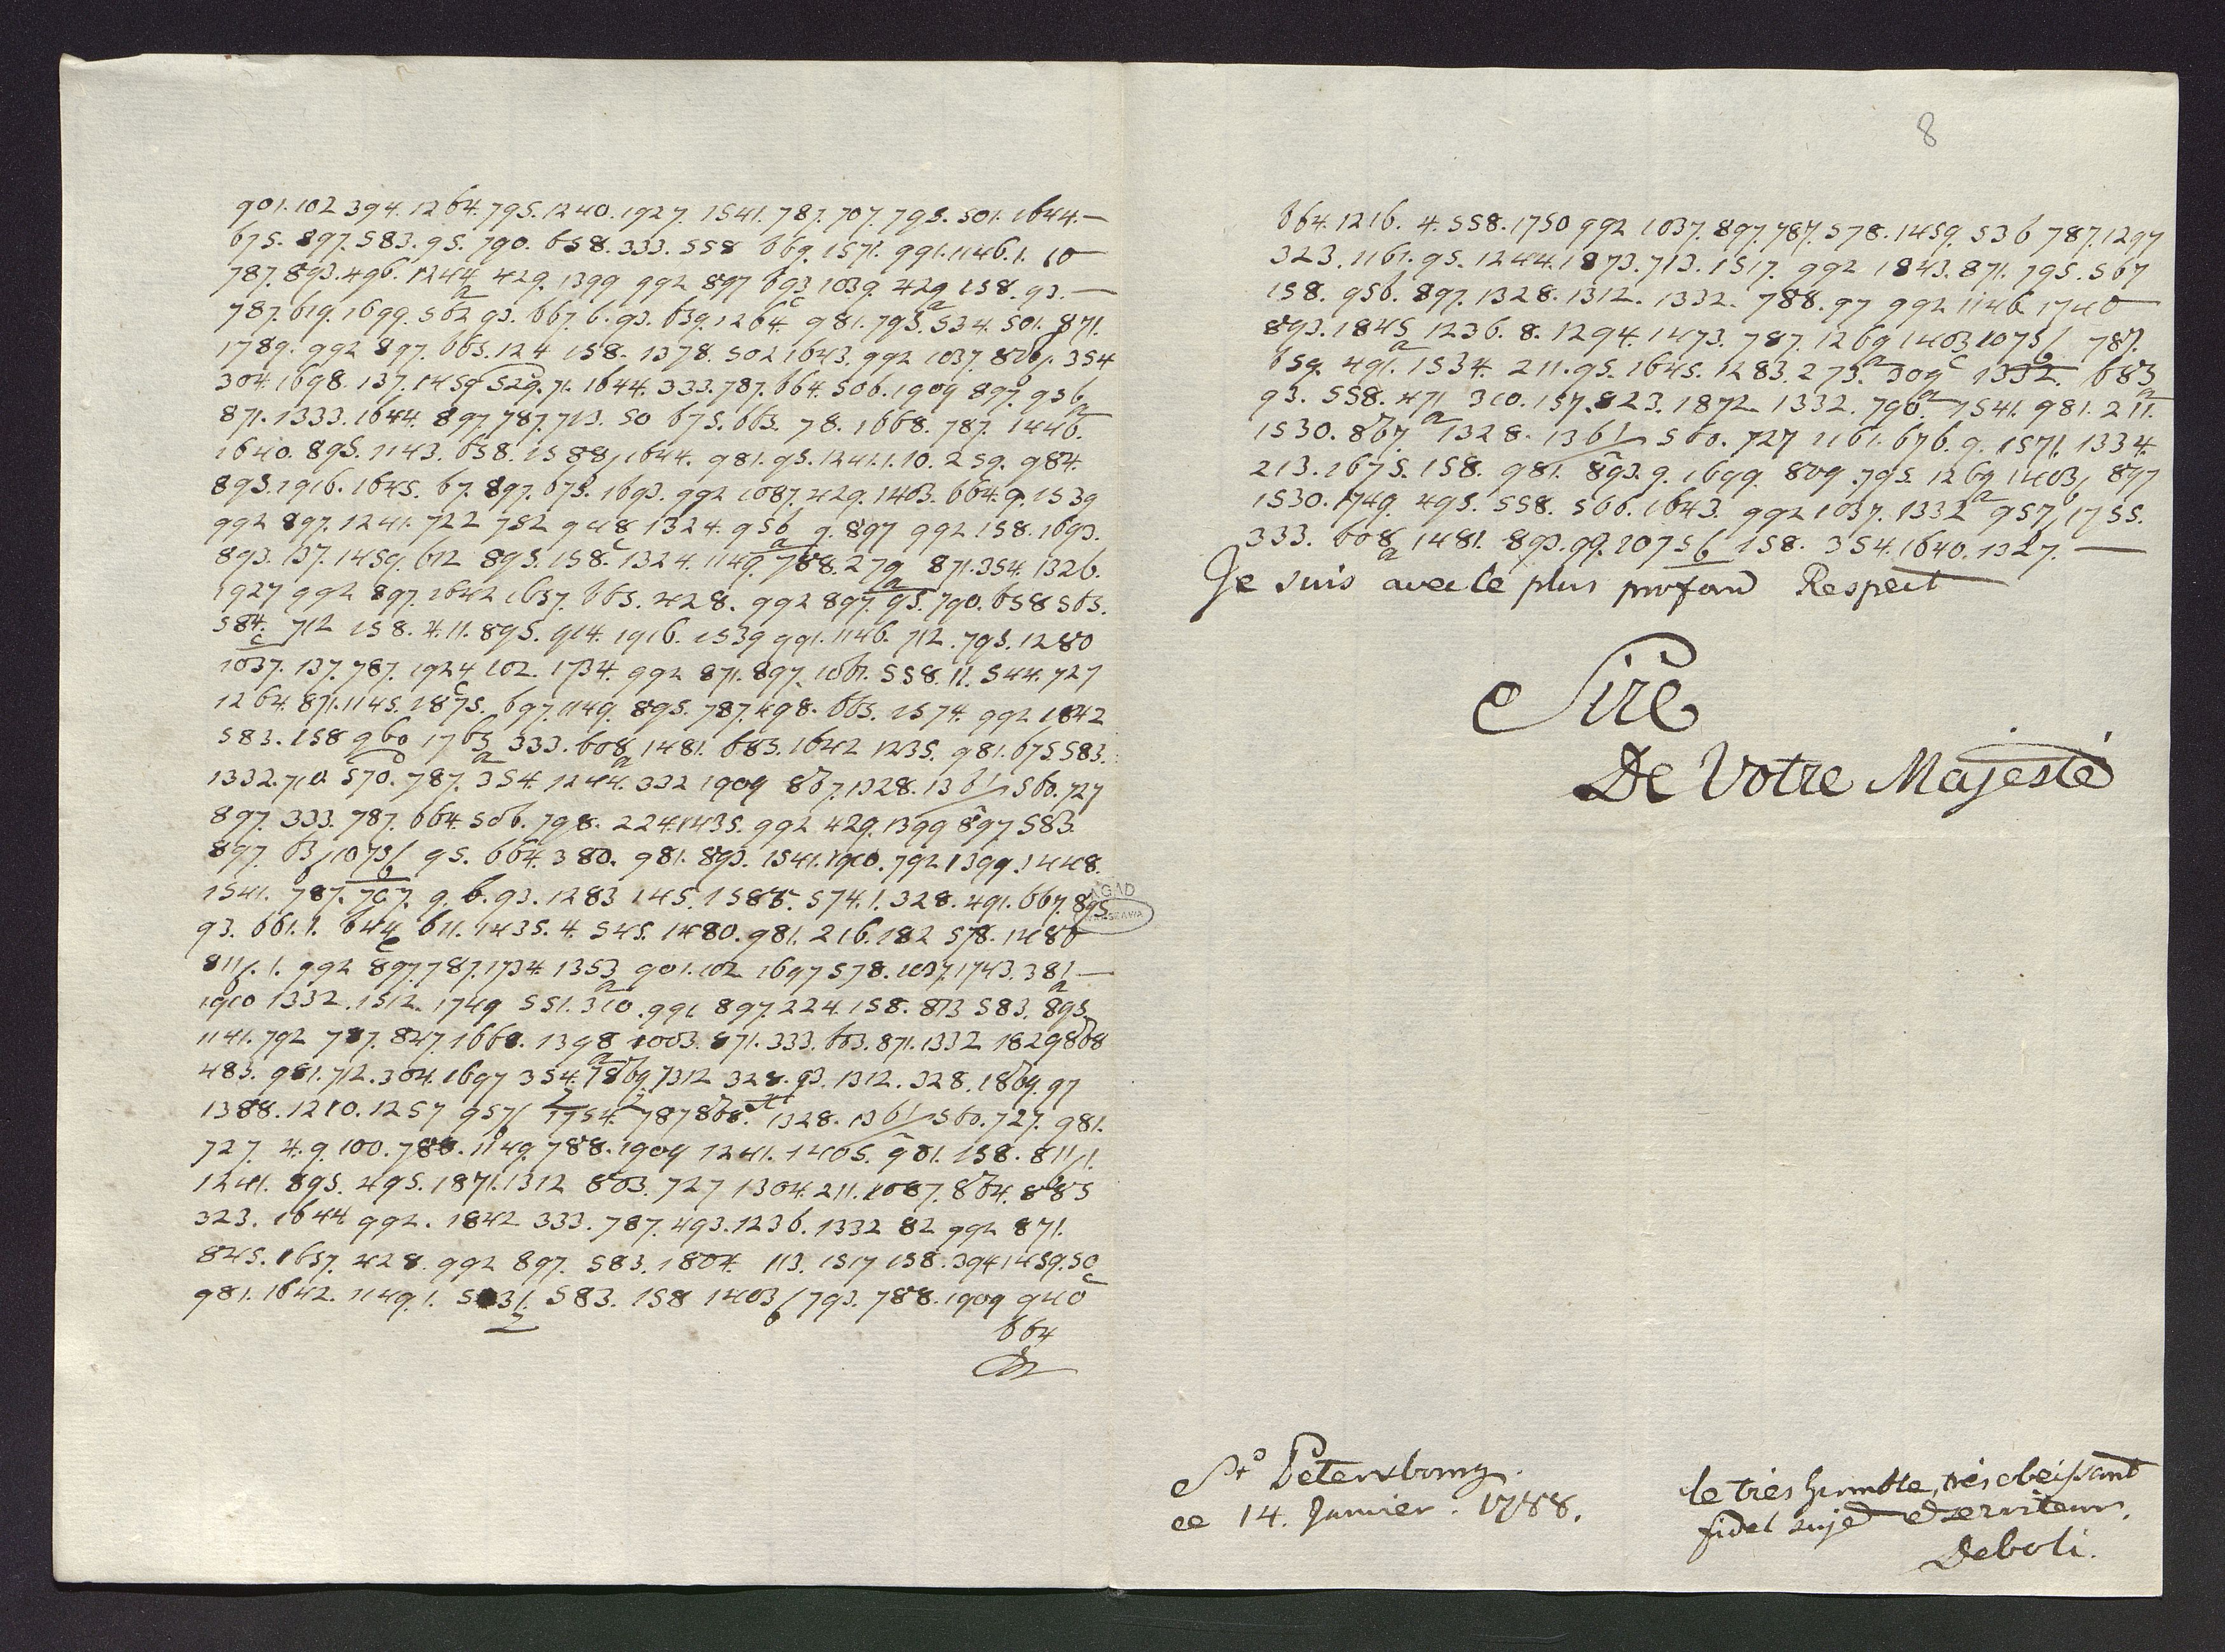 901. 102 394. 1264. 795. 1240. 1927. 1541. 787. 707. 795. 501. 1644.—
675. 897. 583. 95. 790. 658. 333. 558 669. 1571. 991. 1146. 1. 10—
787. 893. 496. 1244 429. 1399 992 897 693 1039. 429 158. 93.—
787. 619. 1699. 562 93. 667. 6. 93. 639. 1264 981. 795. 534. 501. 871.
1789. 992 897. 665. 124 158. 1378. 502 1643. 992 1037. 354
304. 1698. 137. 1459 529. 71. 1644. 333. 787. 664. 506. 1909 897. 956
871. 1333. 1644. 897. 787. 713. 50 675. 665. 78. 1668. 787. 1446.
1640. 895. 1143. 658. 1588, 1644. 981. 95. 1241. 1. 10. 259. 984.
895. 1916. 1645. 67. 897. 675. 1693. 992 1087. 429. 1463. 664. 9. 1539
992 897. 1241. 722 752 948 1324. 956 9. 897 992 158. 1693.
893. 137. 1459. 612 895. 158. 1324. 1149. 788. 279 871. 354. 1326.
1927 992 897. 1642 1657. 665. 428. 992 897. 95. 790. 658 563.
584. 712 158. 4. 11. 895. 914. 1916. 1539 991. 1146. 712. 795. 1280
1037. 137. 787. 1924 102. 1734. 992 871. 897. 1061. 558. 11. 544. 727
1264. 871. 1145. 1875. 697. 1149. 895. 787. 498. 665. 1574. 992 1842
583. 158 960 1763 333. 608 1481. 683. 1642 1235. 981. 675. 583.
1332. 710. 570. 787. 354. 1244. 332 1909 867. 1328. 1361 560. 727
897. 333. 787. 664. 506. 798. 224. 1435. 992 429. 1399 897. 583.
897. 63, 1075/ 95. 664. 380. 981. 893. 1541. 1910. 792 1399. 1448.
1541. 787. 707. 9. 6. 93. 1283 145. 1588. 574. 1. 328. 491. 667. 895
93. 661. 1. 644 611. 1435. 4. 545. 1480. 981. 216. 182 578. 1480
811/. 1. 992 897 787. 1734. 1353 901. 102 1697 578. 1037. 1743. 381.—
1910 1332. 1512. 1749 551. 310. 991 897 224. 158. 873 583. 895
1141. 792 787. 847. 1668. 1398 1003. 871. 333. 663. 871. 1332 1829 868
483. 981. 712. 304. 1697 354. 1869. 1312 328. 93. 1312. 328. 1869. 97
1388. 1210. 1257 957/ 1754. 787 868. 1328. 1361 560. 727. 981.
727. 4. 9. 100. 788. 1149. 788. 1909 1241. 1405. 981. 158. 811/1.
1241. 895. 495. 1871. 1312 803. 727 1304. 211. 1087. 864. 885
323. 1644 992. 1842 333. 787. 493. 1236. 1332 82 992 871.
845. 1657. 428. 992 897. 583. 1804. 113. 1517 158. 394 1459. 50
981. 1642. 1149. 1. 583. 158 1403/ 793. 788. 1909 940
664
8
664. 1216. 4. 558. 1750 992 1037. 897. 787. 578. 1459. 536 787. 1297
323. 1161. 95. 1244. 1873. 713. 1517. 992 1843. 871. 795. 567
158. 956. 897. 1328. 1312. 1332. 788. 97 992 1146 1740
893. 1845 1236. 8. 1294. 1473. 787. 1269 1403 1075/ 787.
659. 491. 1534. 211. 95. 1645. 1283. 275. 309 1332. 683
93. 558. 471 310. 157. 823. 1872 1332. 790. 1541. 981. 211.
1530. 867. 1328. 1361 560. 727 1161. 676. 9. 1571. 1334.
213. 1675. 158. 981. 893. 9. 1699. 809. 795. 1269 1403, 897
1530. 1749. 495. 558. 566. 1643. 992 1037. 1332 957, 1755.
333. 608 1481. 893. 99. 1075 158. 354. 1640. 1327.—
Je suis avec le plus profond Respect
Sire
De Votre Majesté
AGAD
WARSZAWA
St Petersbourg
ce 14. Janvier: 1788.
le très humble, très obeissant
fidel sujet et serviteur.
Deboli.